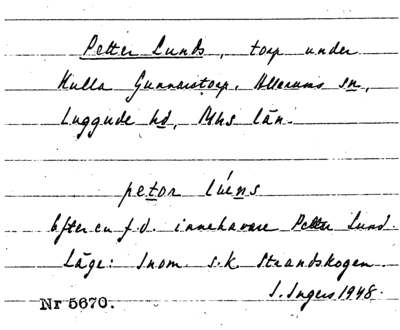 Petter Lunds, torp under
Kulla Gunnarstorp, Allerums sn,
Luggude hd, Mhs län.
petor lúens
Efter en f.d. innehavare Petter Lund.
Läge: Inom s.k. Strandskogen.
I. Ingers 1948.
Nr 5670.